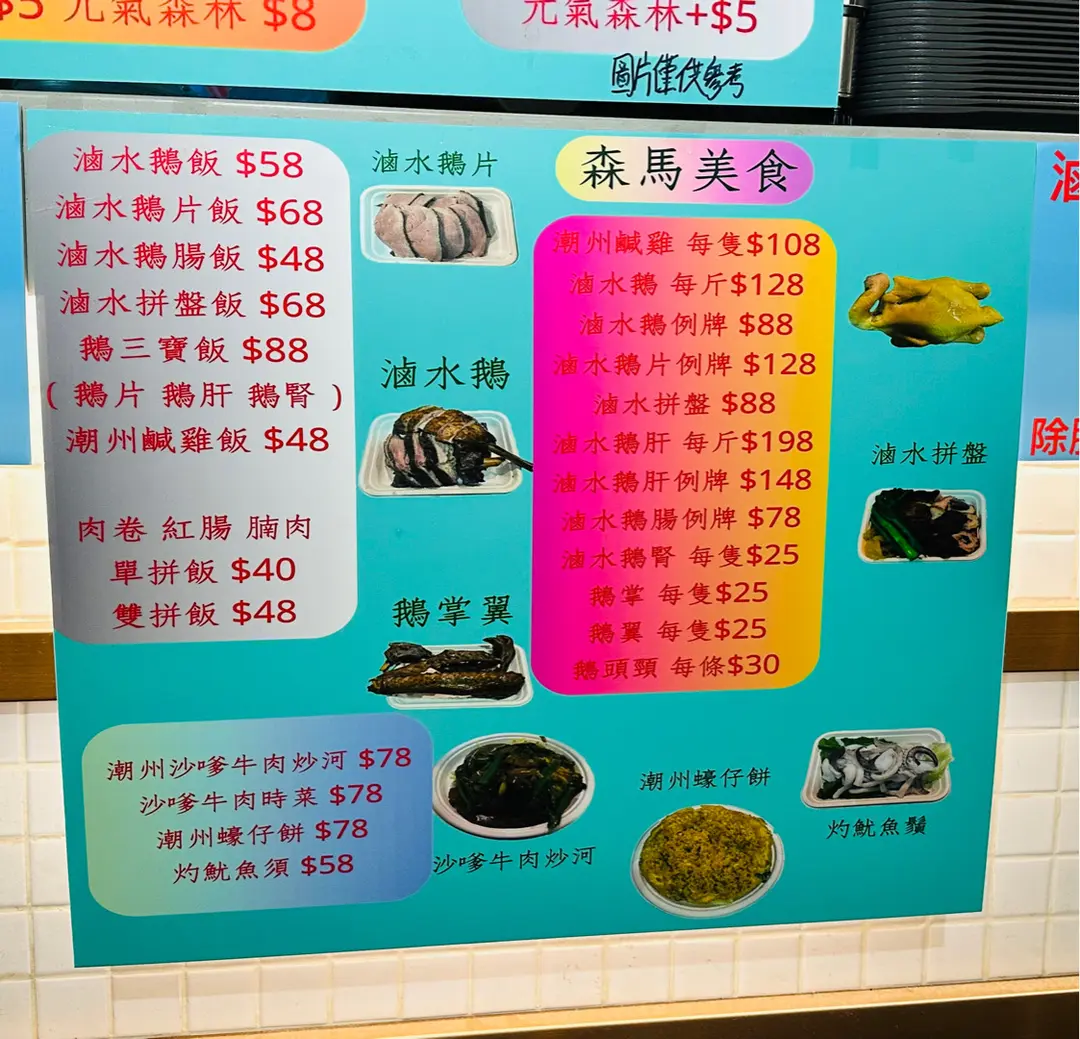 $5 元氣森林 $8
元氣森林+$5
圖片僅供參考
滷水鵝飯 $58
滷水鵝片飯 $68
滷水鵝腸飯 $48
滷水拼盤飯 $68
鵝三寶飯 $88
( 鵝片 鵝肝 鵝腎 )
潮州鹹雞飯 $48
肉卷 紅腸 腩肉
單拼飯 $40
雙拼飯 $48
滷水鵝片
滷水鵝
鵝掌翼
森馬美食
潮州鹹雞 每隻$108
滷水鵝 每斤$128
滷水鵝例牌 $88
滷水鵝片例牌 $128
滷水拼盤 $88
滷水鵝肝 每斤$198
滷水鵝肝例牌 $148
滷水鵝腸例牌 $78
滷水鵝腎 每隻$25
鵝掌 每隻$25
鵝翼 每隻$25
鵝頭頸 每條$30
滷水拼盤
潮州沙嗲牛肉炒河 $78
沙嗲牛肉時菜 $78
潮州蠔仔餅 $78
灼魷魚須 $58
沙嗲牛肉炒河
潮州蠔仔餅
灼魷魚鬚